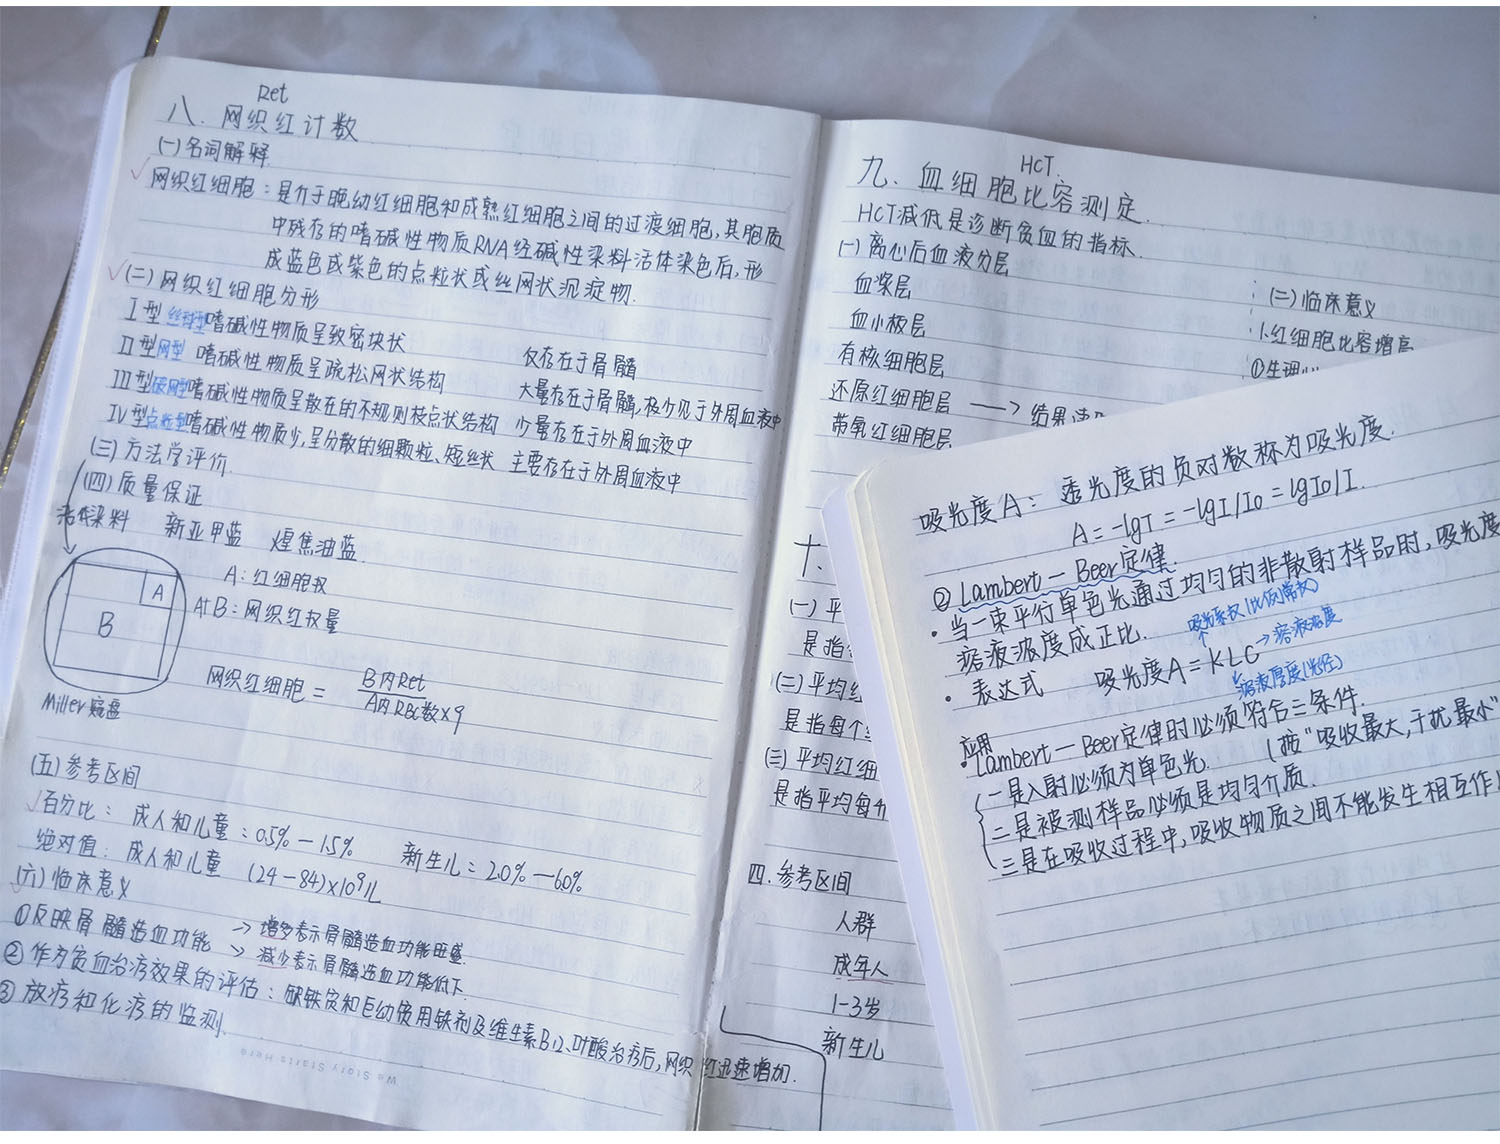 Ret
八．网织红计数
(一)名词解释
网织红细胞：是介于晚幼红细胞和成熟红细胞之间的过渡细胞，其胞质
中残存的嗜碱性物质RNA经碱性染料活体染色后，形
成蓝色或紫色的点粒状或丝网状沉淀物.
(二)网织红细胞分形
I型 丝球型 嗜碱性物质呈致密块状 仅存在于骨髓
II型 网型 嗜碱性物质呈疏松网状结构 大量存在于骨髓，极少见于外周血液中
III型 破网型 嗜碱性物质呈散在的不规则枝点状结构 少量存在于外周血液中
IV型 点粒型 嗜碱性物质少，呈分散的细颗粒、短丝状 主要存在于外周血液中
(三)方法学评价
(四)质量保证
活体染料 新亚甲蓝 煌焦油蓝
A：红细胞数
A+B：网织红数量
A
B
网织红细胞 = B内Ret
A内RBC数×9
Miller窥盘
(五)参考区间
百分比：成人和儿童：0.5%—1.5% 新生儿：2.0%—6.0%
绝对值：成人和儿童 (24—84)×10⁹/L
(六)临床意义
①反映骨髓造血功能 → 增多表示骨髓造血功能旺盛.
→ 减少表示骨髓造血功能低下.
②作为贫血治疗效果的评估：缺铁贫和巨幼使用铁剂及维生素B12、叶酸治疗后，网织红迅速增加.
③放疗和化疗的监测.
We Story Starts Here
HCT
九．血细胞比容测定.
HCT减低是诊断贫血的指标.
(一)离心后血液分层
血浆层
血小板层
有核细胞层
还原红细胞层 → 结果读
带氧红细胞层
(二)临床意义
1.红细胞比容增高
①生理
十.
(一)平
是指
(二)平均红
是指每个
(三)平均红细
是指平均每升
四.参考区间
人群
成年人
1-3岁
新生儿
吸光度A：透光度的负对数称为吸光度.
A=-lgT=-lgI/I0=lgI0/I.
② Lambert—Beer定律.
·当一束平行单色光通过均匀的非散射样品时，吸光度
溶液浓度成正比.
吸光系数(比例常数)
·表达式 吸光度A=KLC→溶液浓度
溶液厚度(光径)
应用
·Lambert—Beer定律时必须符合三条件.
一是入射必须为单色光. (按"吸收最大，干扰最小"
二是被测样品必须是均匀介质.
三是在吸收过程中，吸收物质之间不能发生相互作